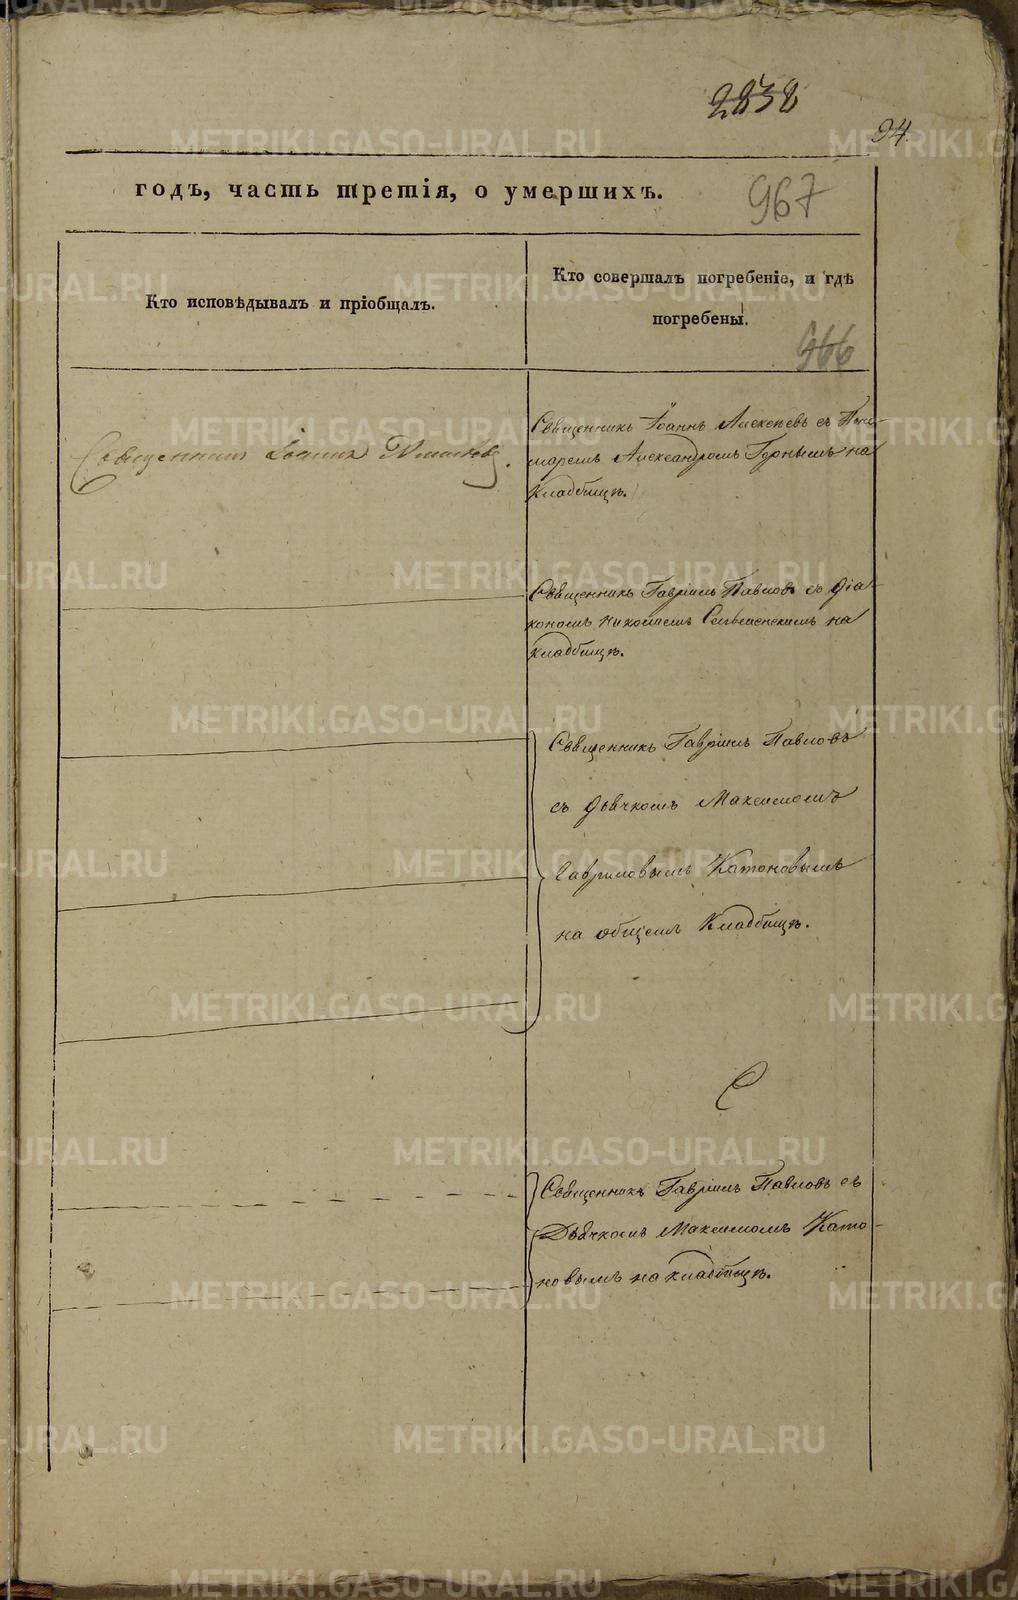 2838
94.
годъ, часть третія, о умершихъ.
967
Кто исповѣдывалъ и пріобщалъ.
Кто совершалъ погребеніе, и гдѣ
погребены.
966
Священникъ Іоаннъ
Священникъ Іоаннъ Алексѣевъ съ Поно-
маремъ Александромъ на
Кладбищѣ.
Священникъ Гавріилъ Павловъ съ діа-
кономъ Николаемъ на
кладбищѣ.
Священникъ Гавріилъ Павловъ
съ дьячкомъ Максимомъ
Гавриловымъ Катоновымъ
на общемъ Кладбищѣ.
Священникъ Гавріилъ Павловъ съ
Дьячкомъ Максимомъ Като-
новымъ на кладбищѣ.
METRIKI.GASO-URAL.RU